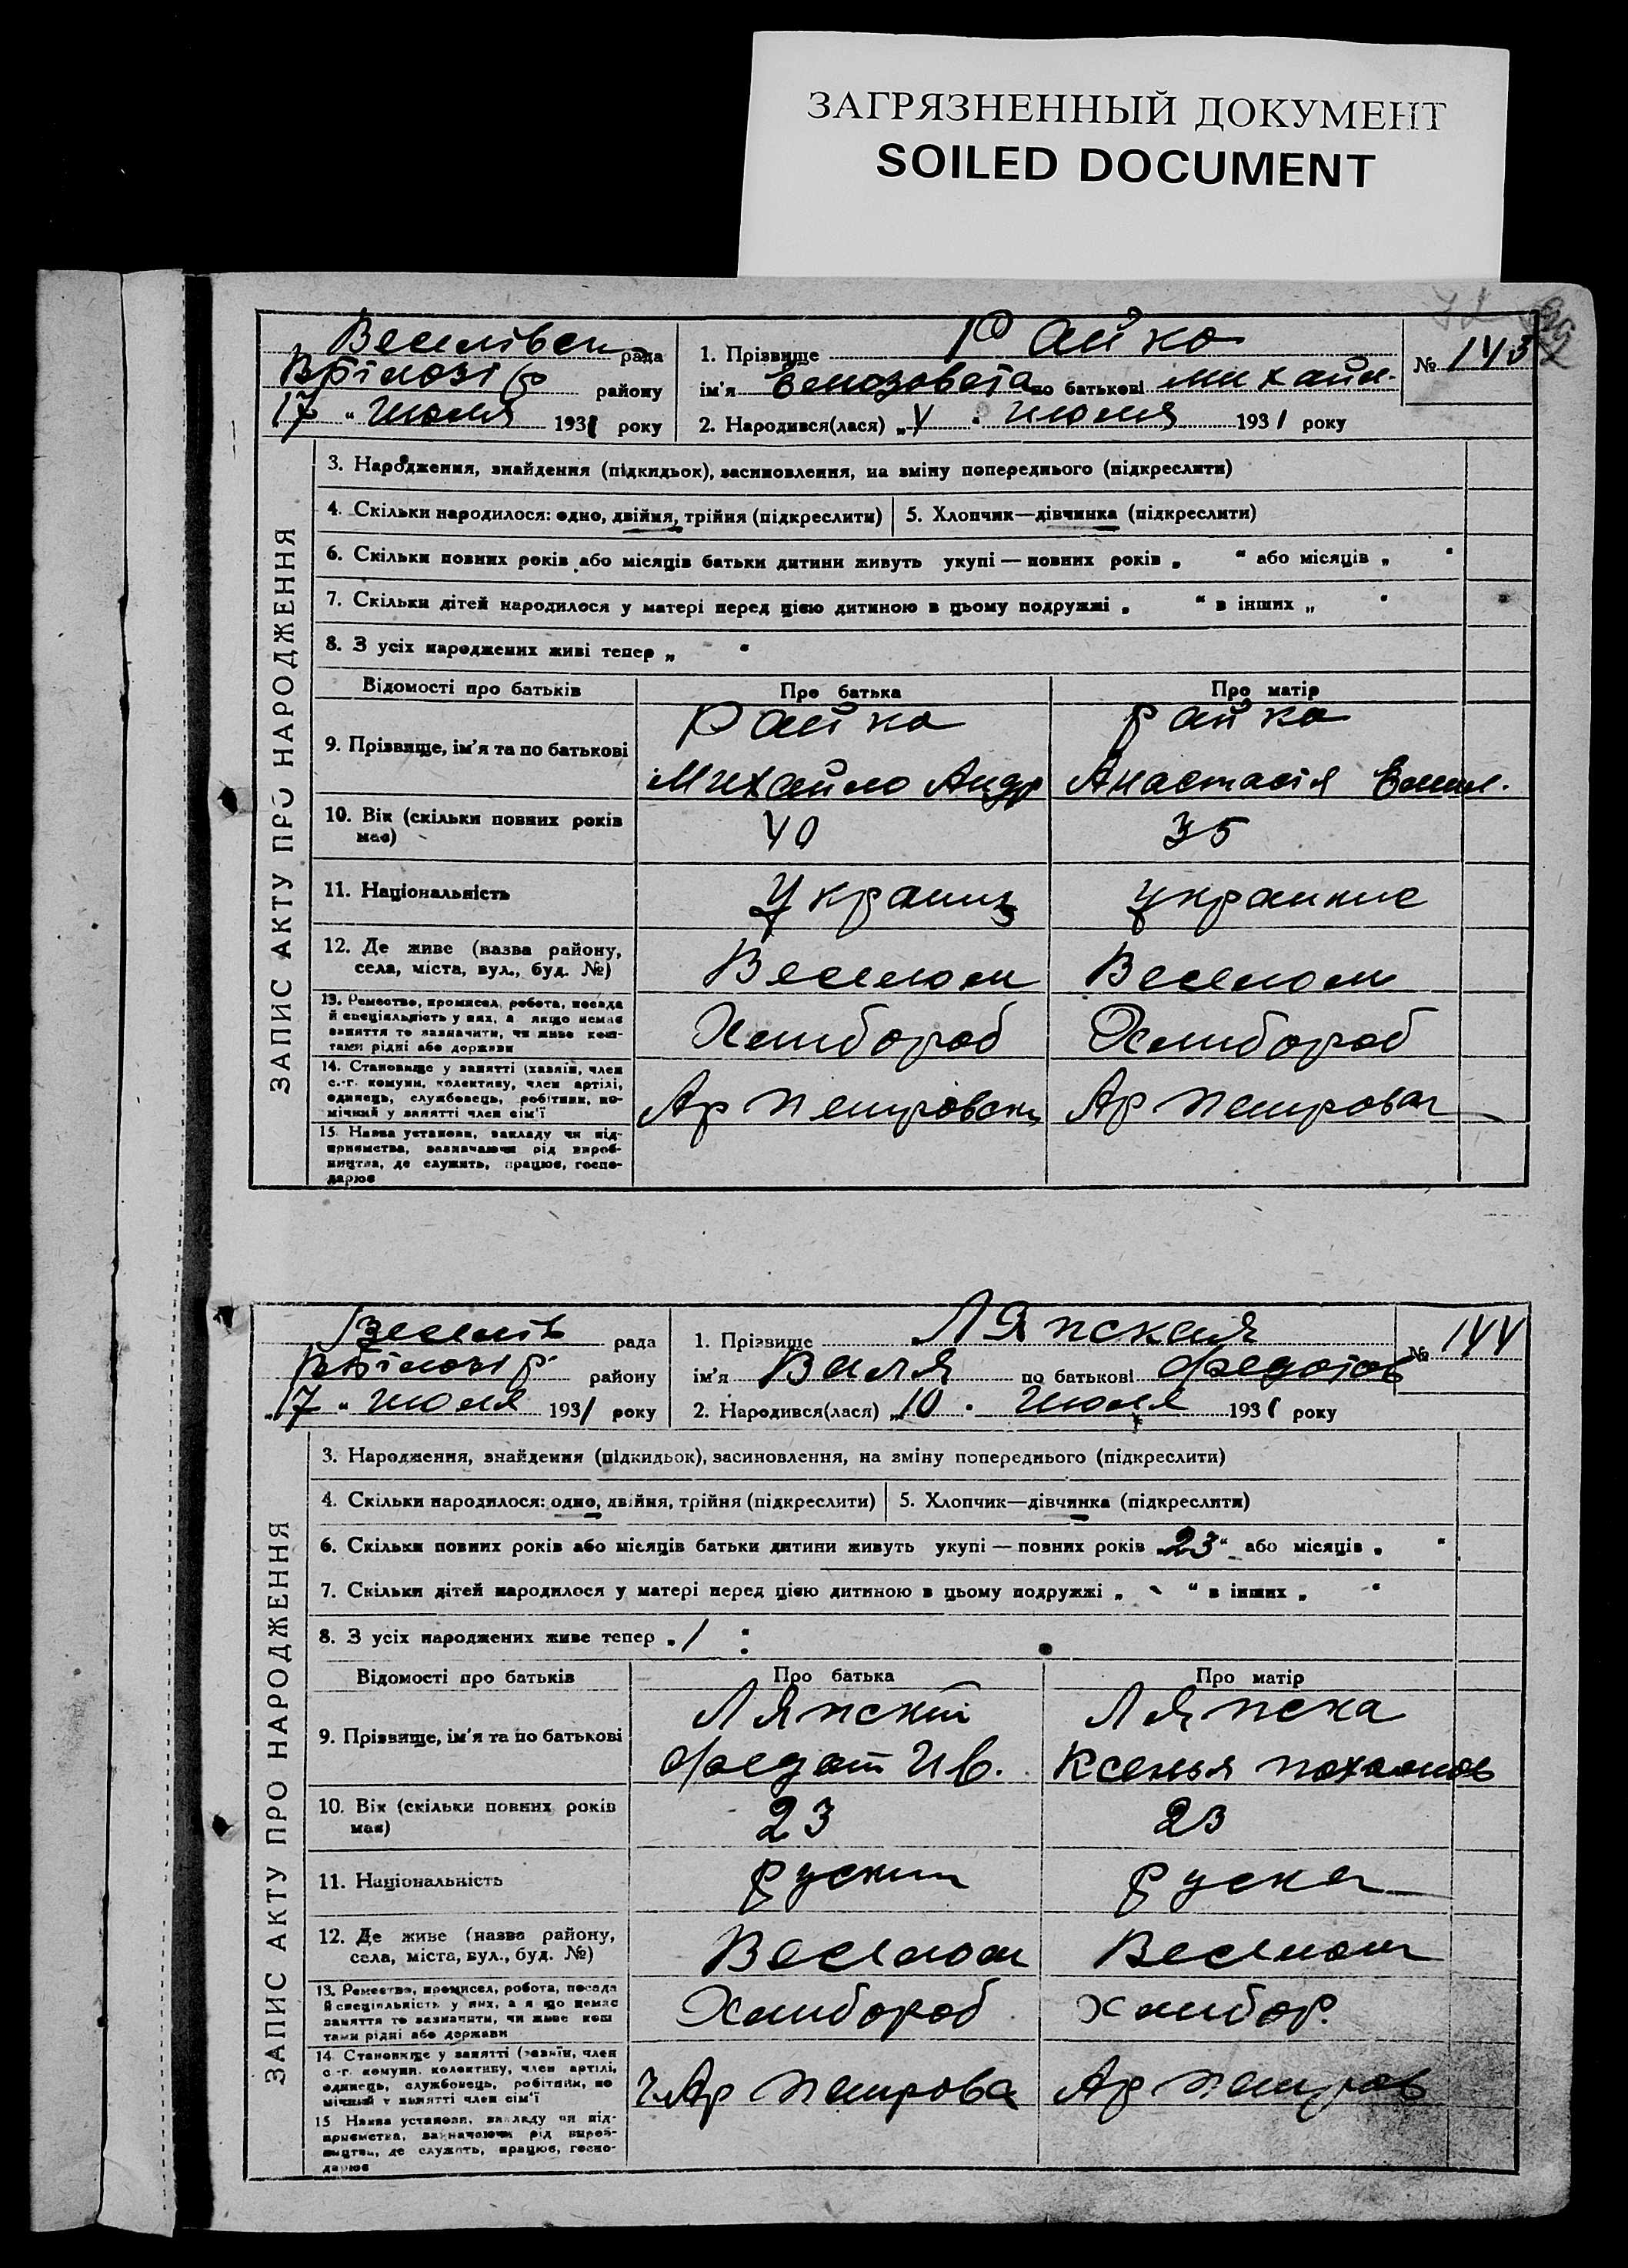 ЗАГРЯЗНЕННЫЙ ДОКУМЕНТ
SOILED DOCUMENT
рада
району
17 " июля 1931 року
1. Прізвище Райко
ім'я по батькові Михайл.
№ 143
2. Народився(лася) „ " июля 1931 року
ЗАПИС АКТУ ПРО НАРОДЖЕННЯ
3. Народження, знайдення (підкидьок), засиновлення, на зміну попереднього (підкреслити)
4. Скільки народилося: одно, двійня, трійня (підкреслити) 5. Хлопчик—дівчинка (підкреслити)
6. Скільки повних років або місяців батьки дитини живуть укупі — повних років „ " або місяців „ "
7. Скільки дітей народилося у матері перед цією дитиною в цьому подружжі „ " в інших „ "
8. З усіх народжених живі тепер „ "
Відомості про батьків Про батька Про матір
9. Прізвище, ім'я та по батькові
Райко Райко
Михайло Андр Анастасія
10. Вік (скільки повних років має) 40 35
11. Національність Украинц украинка
12. Де живе (назва району, села, міста, вул., буд. №)
Веселом Веселом
13. Ремество, промисел, робота, посада й спеціяльність у них, а якщо немає заняття то зазначити, чи живе коштами рідні або держави
Хлибороб Хлибороб
14. Становище у занятті (хазяїн, член с.-г. комуни, колективу, член артілі, одинець, службовець, робітник, помічний у занятті член сім'ї
Ар Петровськ Ар Петровск
15. Назва установи, закладу чи підприємства, зазначаючи рід виробництва, де служить, працює, господарює
Веселів рада
району
„17 " июля 1931 року
1. Прізвище Ляпская
ім'я Валя по батькові Федотов
№ 144
2. Народився(лася) „10 " Июля 1931 року
ЗАПИС АКТУ ПРО НАРОДЖЕННЯ
3. Народження, знайдення (підкидьок), засиновлення, на зміну попереднього (підкреслити)
4. Скільки народилося: одно, двійня, трійня (підкреслити) 5. Хлопчик—дівчинка (підкреслити)
6. Скільки повних років або місяців батьки дитини живуть укупі — повних років „23" або місяців „ "
7. Скільки дітей народилося у матері перед цією дитиною в цьому подружжі „ " в інших „ "
8. З усіх народжених живе тепер „1
Відомості про батьків Про батька Про матір
9. Прізвище, ім'я та по батькові
Ляпский Ляпска
Федот Ив. Ксенья
10. Вік (скільки повних років має) 23 23
11. Національність руский руска
12. Де живе (назва району, села, міста, вул., буд. №)
Веселом Веселом
13. Ремество, промисел, робота, посада й спеціяльність у них, а якщо немає заняття то зазначити, чи живе коштами рідні або держави
Хлибороб хлибор.
14. Становище у занятті (хазяїн, член с.-г. комуни, колективу, член артілі, одинець, службовець, робітник, помічний у занятті член сім'ї
Петрова Ар Петров
15. Назва установи, закладу чи підприємства, зазначаючи рід виробництва, де служить, працює, господарює